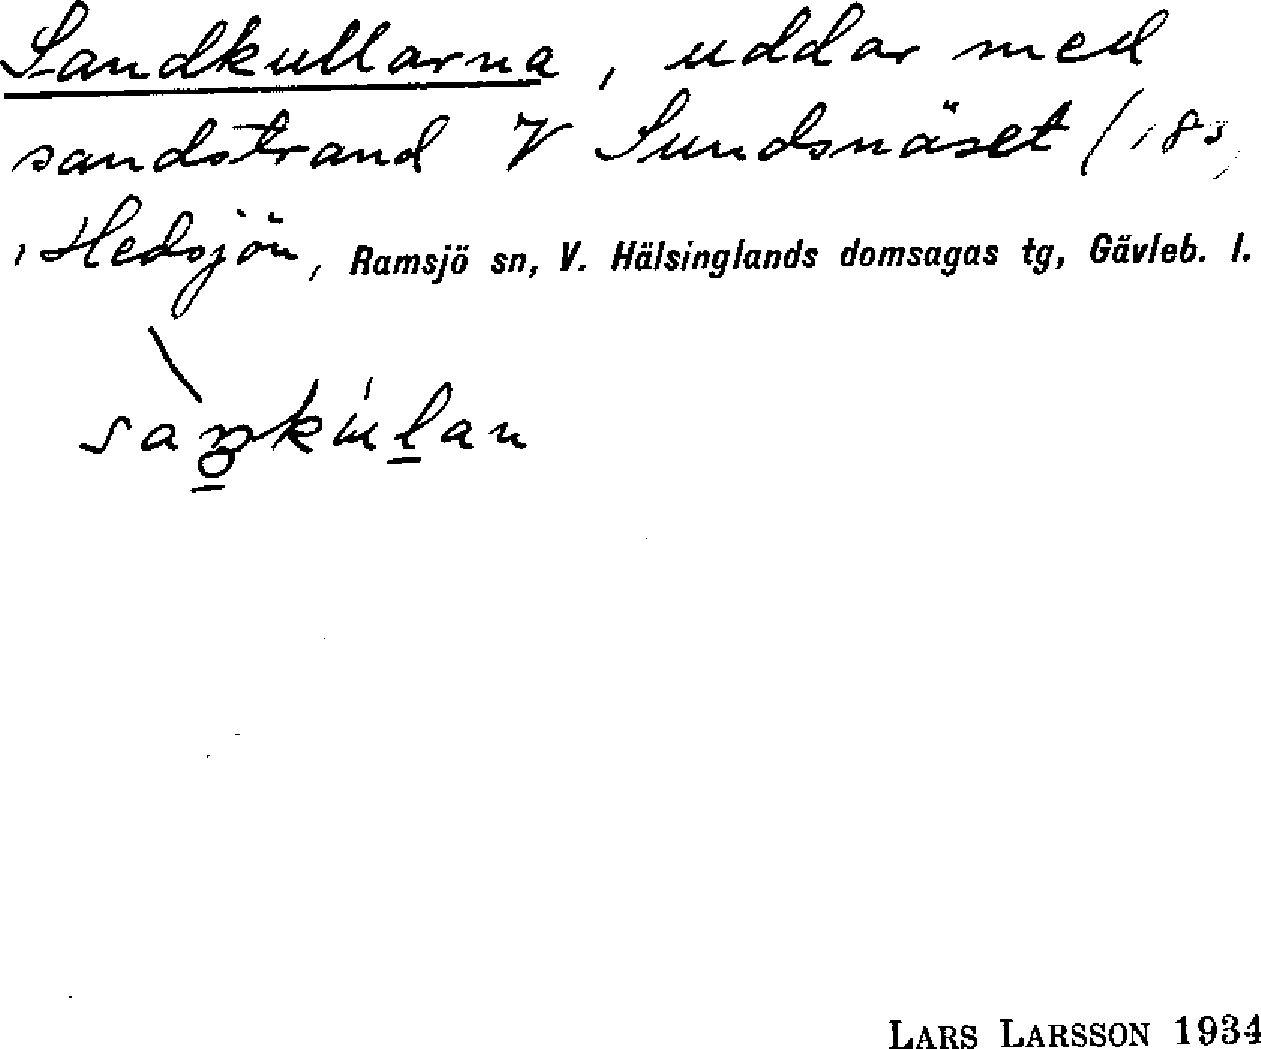 Sandkullarna, uddar med
sandstrand V Sundsnäset
i Hedsjön, Ramsjö sn, V. Hälsinglands domsagas tg, Gävleb. l.
LARS LARSSON 1934